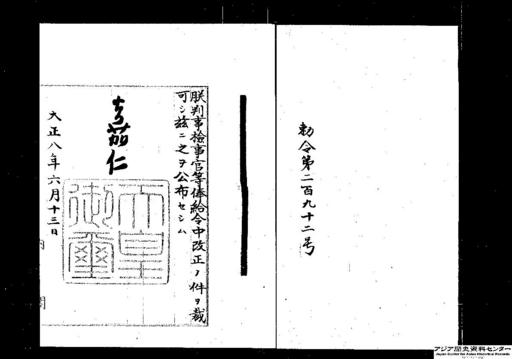 勅令第二百九十二号
朕判事検事官等俸給令中改正ノ件ヲ裁
可シ茲ニ之ヲ公布セシム
嘉仁
天皇御璽
大正八年六月十三日
内閣
アジア歴史資料センター
Japan Center for Asian Historical Records